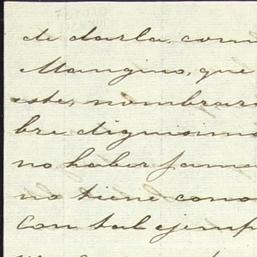 de darla, com
Mangino, que
este, nombrar
bre dignisimo
no haber jama
no tiene cono
con tal ejemp